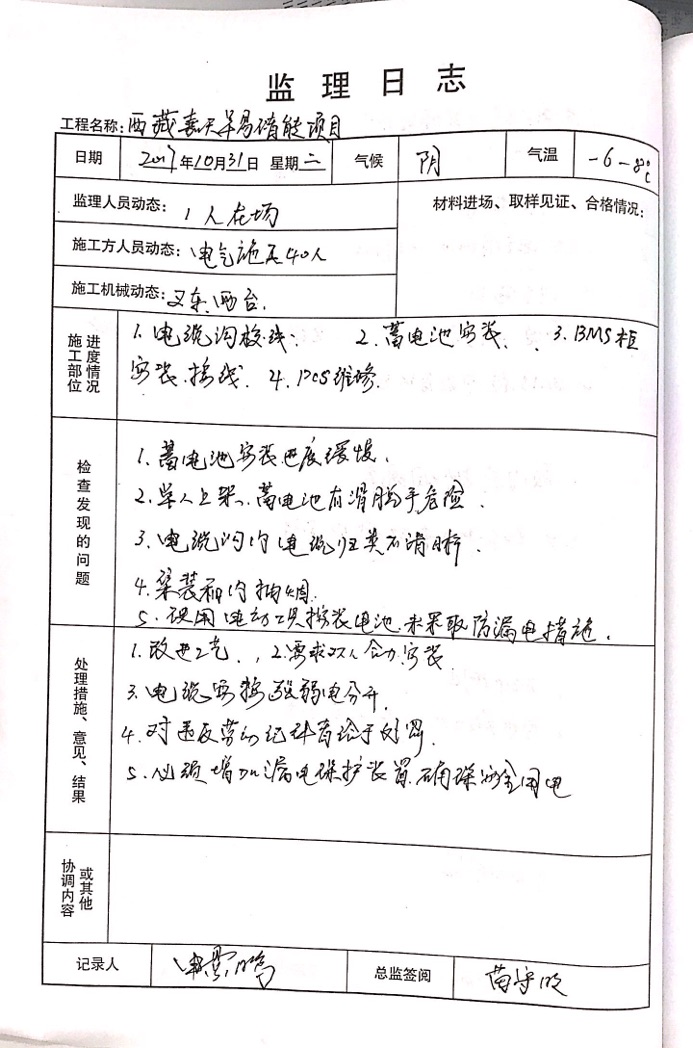 监理日志
工程名称:西藏嘉天羊易储能项目
日期 2017年10月31日 星期二 气候 阴 气温 -6-8℃
监理人员动态: 1人在场 材料进场、取样见证、合格情况:
施工方人员动态: 电气施工40人
施工机械动态: 叉车,两台.
施工部位 进度情况
1. 电缆沟校线; 2. 蓄电池安装、 3. BMS柜
安装、接线. 4. PCS维修.
检查发现的问题
1. 蓄电池安装进度缓慢.
2. 单人上架、蓄电池有滑脱手危险.
3. 电缆沟内电缆归类不清晰.
4. 集装箱内抽烟.
5. 使用电动工具接装电池.未采取防漏电措施.
处理措施、意见、结果
1. 改进工艺., 2. 要求双人合力安装
3. 电缆安按强弱电分开.
4. 对违反劳动纪律者给予处罚.
5. 必须增加漏电保护装置.确保安全用电
协调内容 或其他
记录人 总监签阅 苗守欣